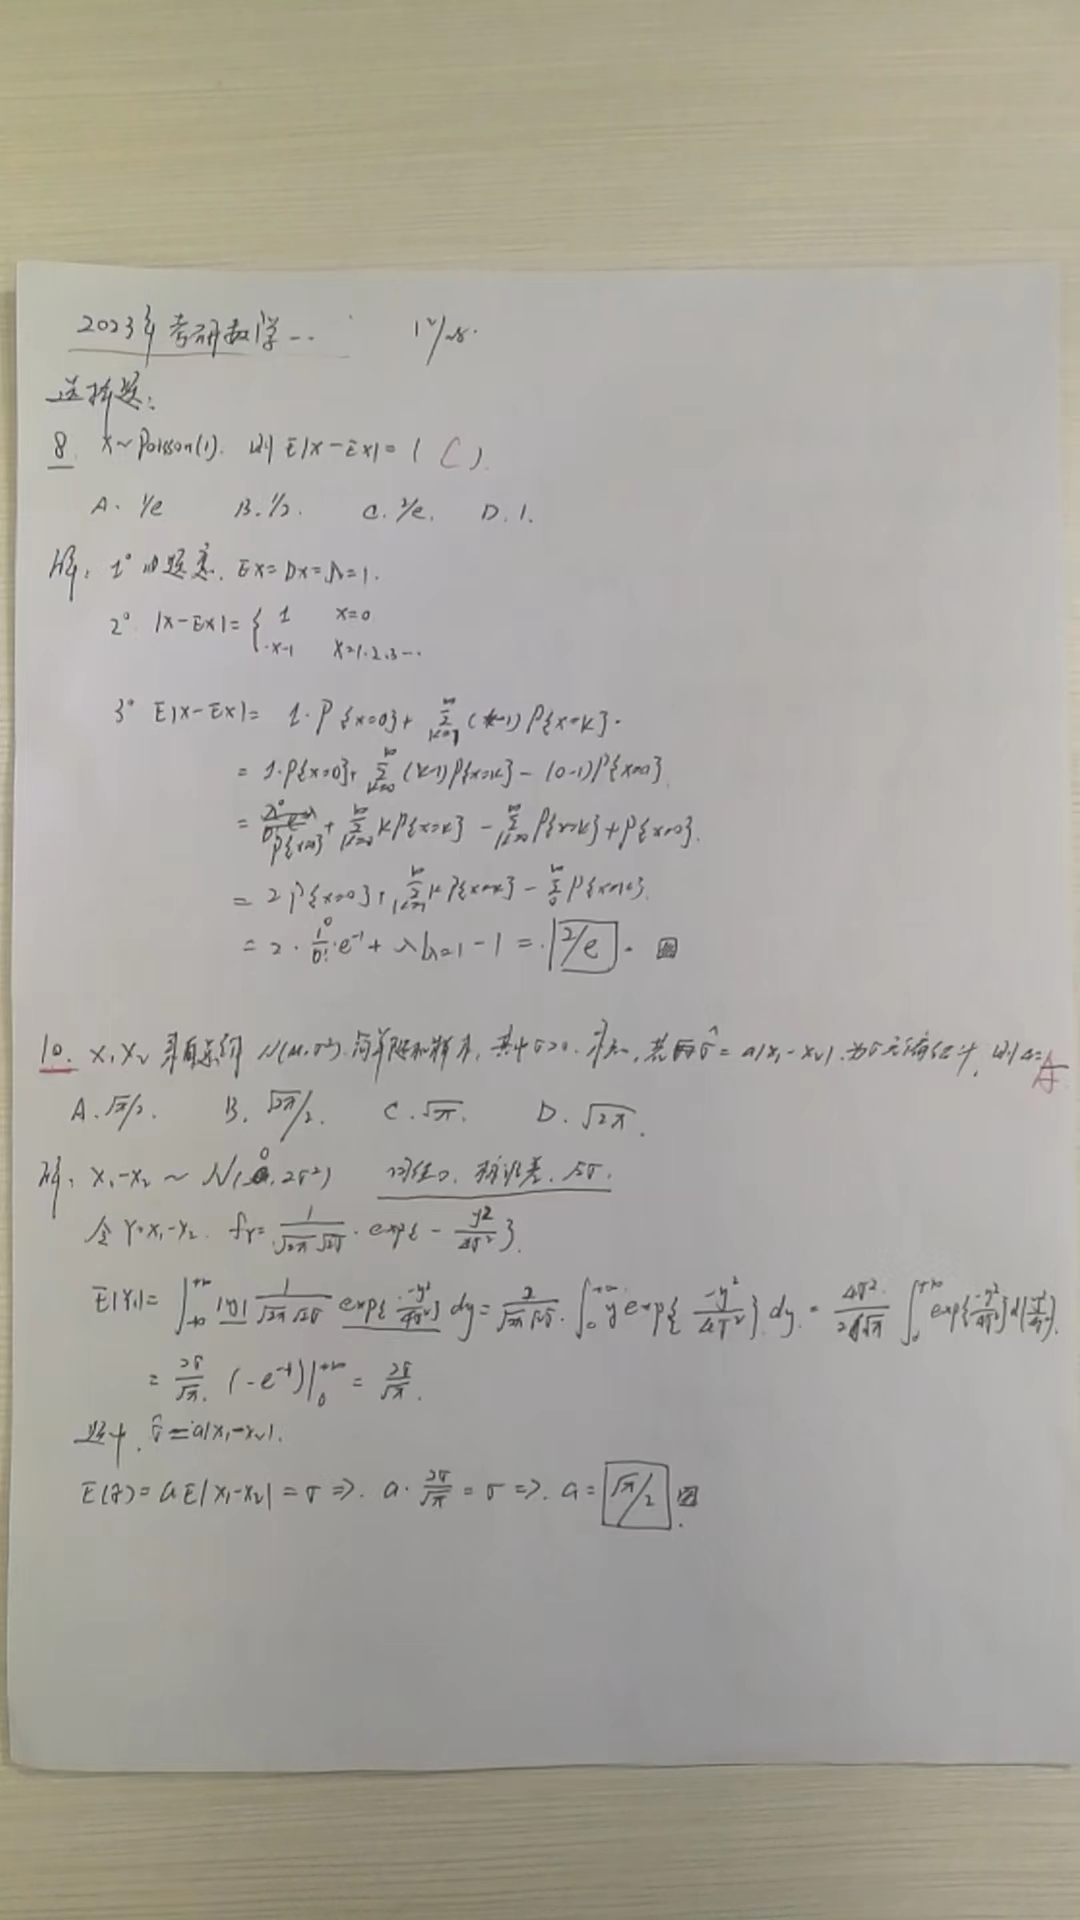 2023年考研数学一.
选择题:
8. X~Poisson(1). 则 E|X-EX|= ( C ).
A. 1/e B. 1/2. C. 2/e. D. 1.
解: 1° 由题意. EX=DX=λ=1.
2° |X-EX|= { 1 X=0
X-1 X=1.2.3…
3° E|X-EX|= 1·P{X=0}+ ∑_{k=1}^{∞}(k-1)P{X=k}.
= 1·P{X=0}+ ∑_{k=0}^{∞}(k-1)P{X=k} - (0-1)P{X=0}.
= P{X=0} + ∑_{k=0}^{∞} kP{X=k} - ∑_{k=0}^{∞} P{X=k} + P{X=0}.
= 2P{X=0}+ ∑_{k=0}^{∞} kP{X=k} - ∑_{0}^{∞} P{X=k}.
= 2 · 1^0/0! · e^{-1} + λ|_{λ=1} - 1 = 2/e.
10. X₁X₂ 来自总体 N(μ,σ²). 简单随机样本, 其中σ>0. 未知, 若 σ̂ = a|X₁-X₂|. 为σ无偏估计, 则 a= A
A. √π/2. B. √2π/2. C. √π. D. √2π.
解: X₁-X₂ ~ N(0, 2σ²) 均值0. 标准差. √2σ.
令 Y=X₁-X₂. f_Y= 1/(√2π √2σ) · exp{ - y²/4σ² }.
E|Y|= ∫_{-∞}^{+∞} |y| 1/(√2π √2σ) exp{-y²/4σ²} dy = 2/(√2π √2σ) · ∫_0^{+∞} y exp{-y²/4σ²} dy. = 4σ²/(2σ√π) ∫_0^{+∞} exp{-y²/4σ²} d(y²/4σ²).
= 2σ/√π. (-e^{-t})|_0^{+∞} = 2σ/√π.
题中, σ̂ = a|X₁-X₂|.
E(σ̂) = a E|X₁-X₂| = σ ⇒. a · 2σ/√π = σ ⇒. a = √π/2.